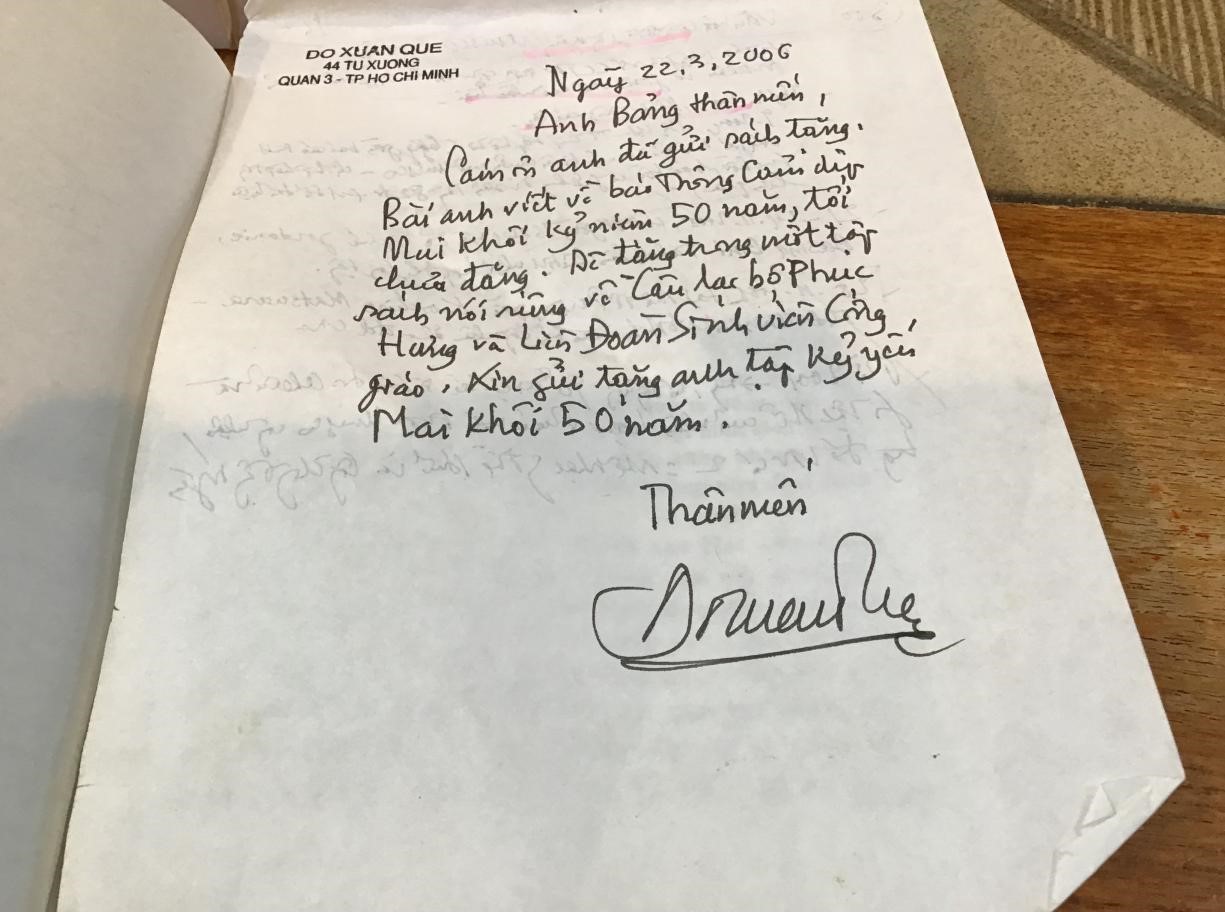 DO XUAN QUE
44 TU XUONG
QUAN 3 - TP HO CHI MINH
Ngày 22.3.2006
Anh Bảng thân mến,
Cám ơn anh đã gửi sách tặng.
Bài anh viết về báo Thông Cảm dịp
Mai Khôi kỷ niệm 50 năm, tôi
chưa đăng. Để đăng trong một tập
sách nói riêng về Câu lạc bộ Phục
Hưng và Liên Đoàn Sinh viên Công
giáo. Xin gửi tặng anh tập kỷ yếu
Mai Khôi 50 năm.
Thân mến